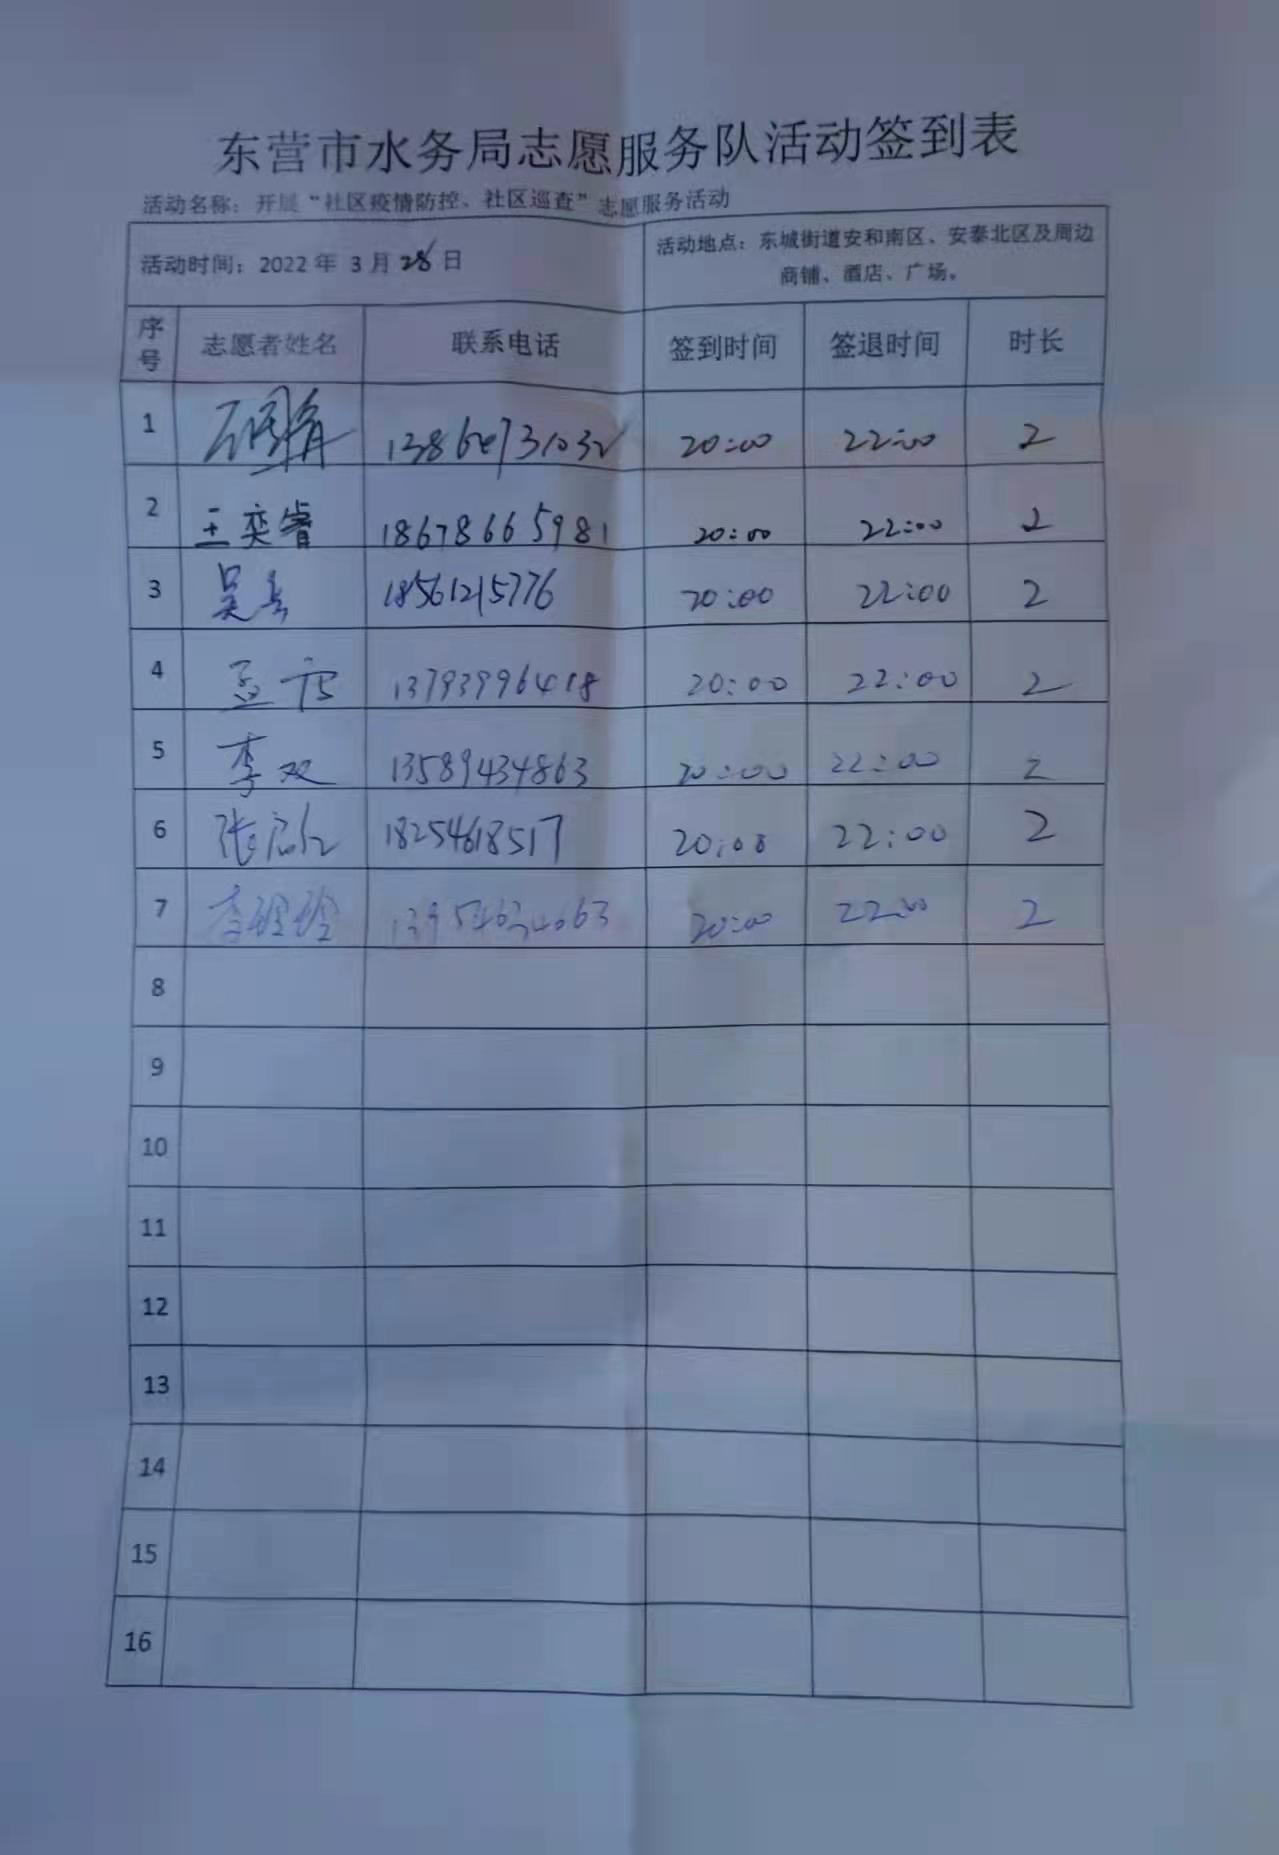 东营市水务局志愿服务队活动签到表
活动名称：开展“社区疫情防控、社区巡查”志愿服务活动
活动时间：2022 年 3 月 28 日 活动地点：东城街道安和南区、安泰北区及周边
商铺、酒店、广场。
序号 志愿者姓名 联系电话 签到时间 签退时间 时长
1 20:00 22:00 2
2 王奕睿 18678665981 20:00 22:00 2
3 18561215776 20:00 22:00 2
4 13793996418 20:00 22:00 2
5 李双 13589434863 20:00 22:00 2
6 18254618517 20:00 22:00 2
7 李玲玲 20:00 22:00 2
8
9
10
11
12
13
14
15
16